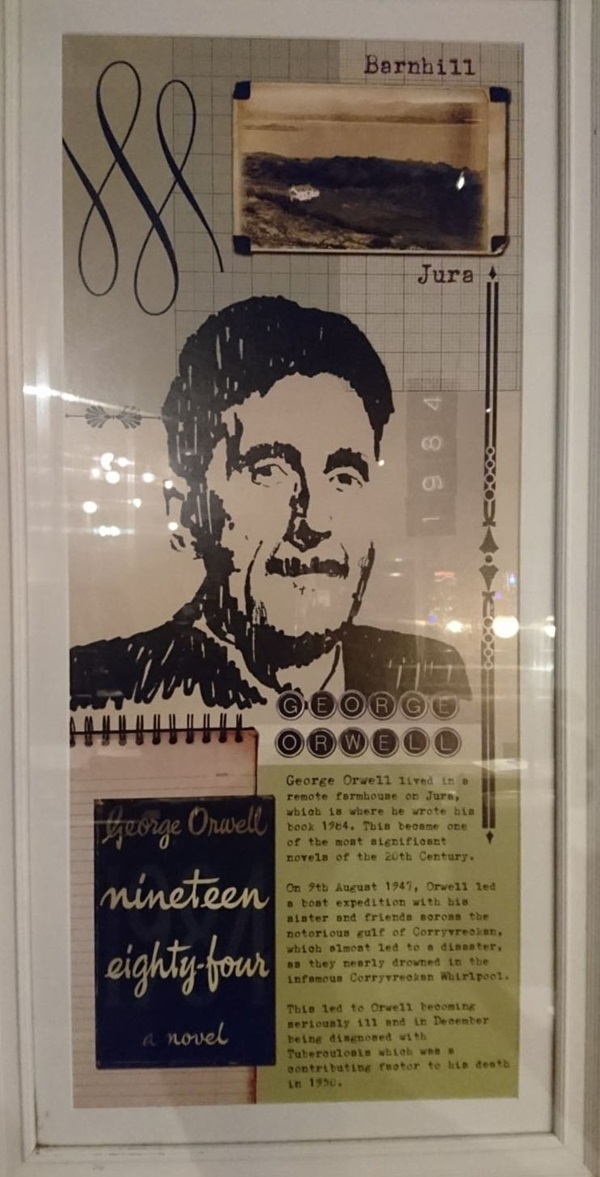 Barnhill
Jura
1984
GEORGE
ORWELL
George Orwell lived in a
remote farmhouse on Jura,
which is where he wrote his
book 1984. This became one
of the most significant
novels of the 20th Century.
On 9th August 1947, Orwell led
a boat expedition with his
sister and friends across the
notorious gulf of Corryvreckan,
which almost led to a disaster,
as they nearly drowned in the
infamous Corryvreckan Whirlpool.
This led to Orwell becoming
seriously ill and in December
being diagnosed with
Tuberculosis which was a
contributing factor to his death
in 1950.
George Orwell
nineteen
eighty-four
a novel